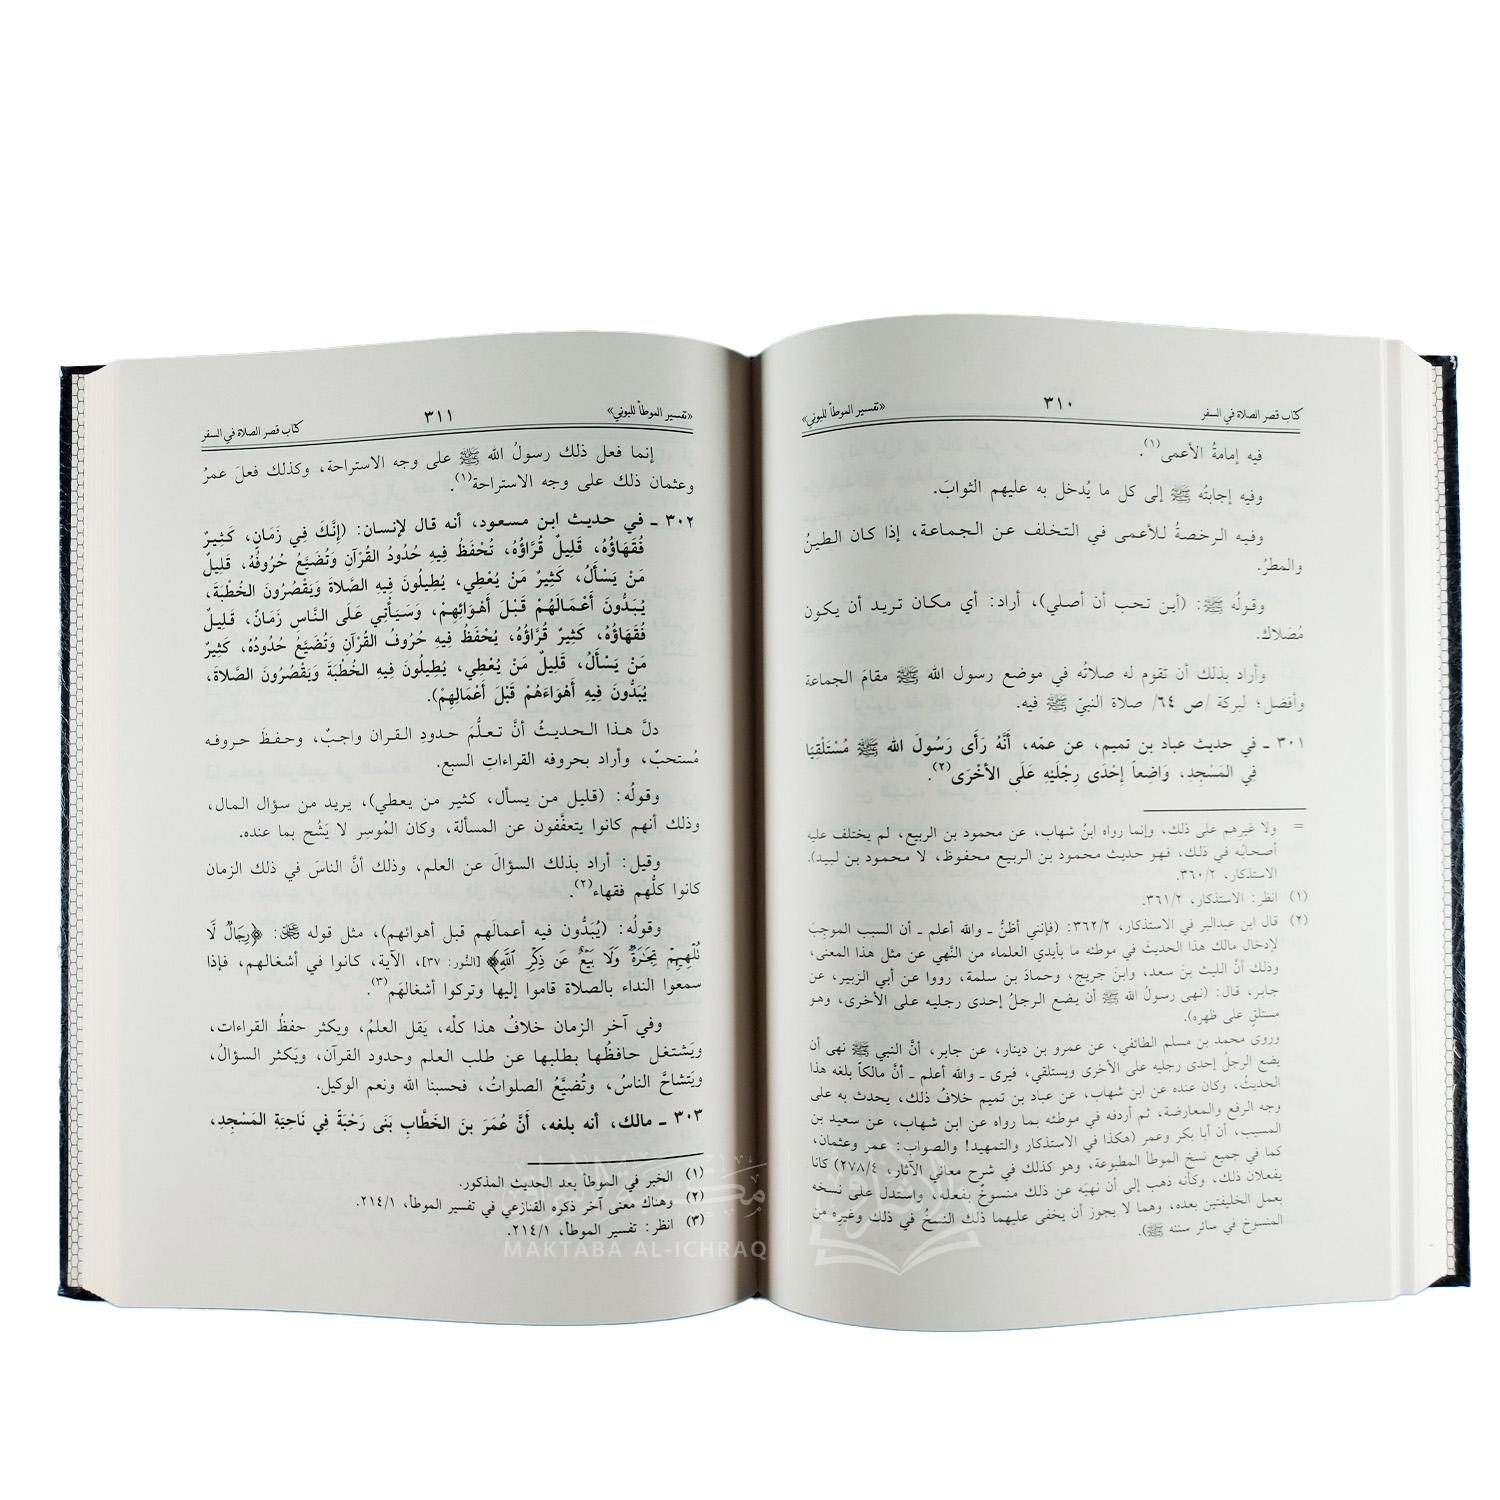 كتاب قصر الصلاة في السفر
٣١٠
«تفسير الموطأ للبوني»
فيه إمامةُ الأعمى(١).
وفيه إجابتُه ﷺ إلى كل ما يُدخل به عليهم الثوابَ.
وفيه الرخصةُ للأعمى في التخلف عن الجماعة، إذا كان الطينُ
والمطرُ.
وقولُه ﷺ: (أين تحب أن أصلي)، أراد: أي مكان تريد أن يكون
مُصَلاك.
وأراد بذلك أن تقوم له صلاتُه في موضع رسول الله ﷺ مقامَ الجماعة
وأفضل؛ لبركة /ص ٦٤/ صلاة النبيّ ﷺ فيه.
٣٠١ ـ في حديث عباد بن تميم، عن عمّه، أَنَّهُ رَأَى رَسُولَ الله ﷺ مُسْتَلْقِيَا
فِي المَسْجِدِ، وَاضِعاً إِحْدَى رِجْلَيْهِ عَلَى الأخْرَى(٢).
= ولا غيرهم على ذلك، وإنما رواه ابنُ شهاب، عن محمود بن الربيع، لم يختلف عليه
أصحابُه في ذلك، فهو حديث محمود بن الربيع محفوظ، لا محمود بن لبيد).
الاستذكار، ٣٦٠/٢.
(١) انظر: الاستذكار، ٣٦١/٢.
(٢) قال ابن عبدالبر في الاستذكار، ٣٦٢/٢: (فإنني أظنُّ ـ والله أعلم ـ أن السبب الموجِبَ
لإدخال مالك هذا الحديث في موطئه ما بأيدي العلماء من النَّهي عن مثل هذا المعنى،
وذلك أنَّ الليث بنَ سعد، وابنَ جريج، وحمادَ بن سلمة، رووا عن أبي الزبير، عن
جابر، قال: (نهى رسولُ الله ﷺ أن يضع الرجلُ إحدى رجليه على الأخرى، وهو
مستلقٍ على ظهره).
وروى محمد بن مسلم الطائفي، عن عمرو بن دينار، عن جابر، أنَّ النبي ﷺ نهى أن
يضع الرجلُ إحدى رجليه على الأخرى ويستلقي، فيرى ـ والله أعلم ـ أنَّ مالكاً بلغه هذا
الحديثُ، وكان عنده عن ابن شهاب، عن عباد بن تميم خلافُ ذلك، يحدث به على
وجه الرفع والمعارضة، ثم أردفه في موطئه بما رواه عن ابن شهاب، عن سعيد بن
المسيب، أن أبا بكر وعمر (هكذا في الاستذكار والتمهيد! والصواب: عمر وعثمان،
كما في جميع نسخ الموطأ المطبوعة، وهو كذلك في شرح معاني الآثار، ٢٧٨/٤) كانا
يفعلان ذلك، وكأنه ذهب إلى أن نهيَه عن ذلك منسوخٌ بفعله، واستدل على نسخه
بعمل الخليفتين بعده، وهما لا يجوز أن يخفى عليهما ذلك النسخُ في ذلك وغيره من
المنسوخ في سائر سننه ﷺ).
«تفسير الموطأ للبوني»
٣١١
كتاب قصر الصلاة في السفر
إنما فعل ذلك رسولُ الله ﷺ على وجه الاستراحة، وكذلك فعلَ عمرُ
وعثمان ذلك على وجه الاستراحة(١).
٣٠٢ ـ في حديث ابن مسعود، أنه قال لإنسان: (إنَّكَ فِي زَمَانٍ، كَثِيرٌ
فُقَهَاؤُهُ، قَلِيلٌ قُرَّاؤُهُ، تُحْفَظُ فِيهِ حُدُودُ القُرْآنِ وَتُضَيَّعُ حُرُوفُهُ، قَلِيلٌ
مَنْ يَسْأَلُ، كَثِيرٌ مَنْ يُعْطِي، يُطِيلُونَ فِيهِ الصَّلاةَ وَيَقْصُرُونَ الخُطْبَةَ،
يُبَدُّونَ أَعْمَالَهُمْ قَبْلَ أَهْوَائِهِمْ، وَسَيَأْتِي عَلَى النَّاسِ زَمَانٌ، قَلِيلٌ
فُقَهَاؤُهُ، كَثِيرٌ قُرَّاؤُهُ، يُحْفَظُ فِيهِ حُرُوفُ القُرْآنِ وَتُضَيَّعُ حُدُودُهُ، كَثِيرٌ
مَنْ يَسْأَلُ، قَلِيلٌ مَنْ يُعْطِي، يُطِيلُونَ فِيهِ الخُطْبَةَ وَيَقْصُرُونَ الصَّلاةَ،
يُبَدُّونَ فِيهِ أَهْوَاءَهُمْ قَبْلَ أَعْمَالِهِمْ).
دلَّ هذا الحديثُ أنَّ تعلُّمَ حدودِ القران واجبٌ، وحفظَ حروفه
مُستحبٌ، وأراد بحروفه القراءاتِ السبع.
وقولُه: (قليل من يسأل، كثير من يعطي)، يريد من سؤال المال،
وذلك أنهم كانوا يتعفَّفون عن المسألة، وكان المُوسِر لا يَشُح بما عنده.
وقيل: أراد بذلك السؤالَ عن العلم، وذلك أنَّ الناسَ في ذلك الزمان
كانوا كلُّهم فقهاء(٢).
وقولُه: (يُبَدُّون فيه أعمالَهم قبل أهوائهم)، مثل قوله ﷻ: ﴿رِجَالٌ لَّا
نُلْهِيهِمْ تِجَٰرَةٌ وَلَا بَيْعٌ عَن ذِكْرِ ٱللَّهِ﴾ [النُّور: ٣٧]، الآية، كانوا في أشغالهم، فإذا
سمعوا النداء بالصلاة قاموا إليها وتركوا أشغالَهَم(٣).
وفي آخر الزمان خلافُ هذا كلّه، يَقل العلمُ، ويكثر حفظُ القراءات،
ويَشتغل حافظُها بطلبها عن طلب العلم وحدود القرآن، ويَكثر السؤالُ،
ويَتشاحَّ الناسُ، وتُضيَّعُ الصلواتُ، فحسبنا الله ونعم الوكيل.
٣٠٣ ـ مالك، أنه بلغه، أَنَّ عُمَرَ بنَ الخَطَّابِ بَنَى رَحْبَةً فِي نَاحِيَةِ المَسْجِدِ،
(١) الخبر في الموطأ بعد الحديث المذكور.
(٢) وهناك معنى آخر ذكره القنازعي في تفسير الموطأ، ٢١٤/١.
(٣) انظر: تفسير الموطأ، ٢١٤/١.
مكتبة الإشراق
MAKTABA AL-ICHRAQ
الإشراق